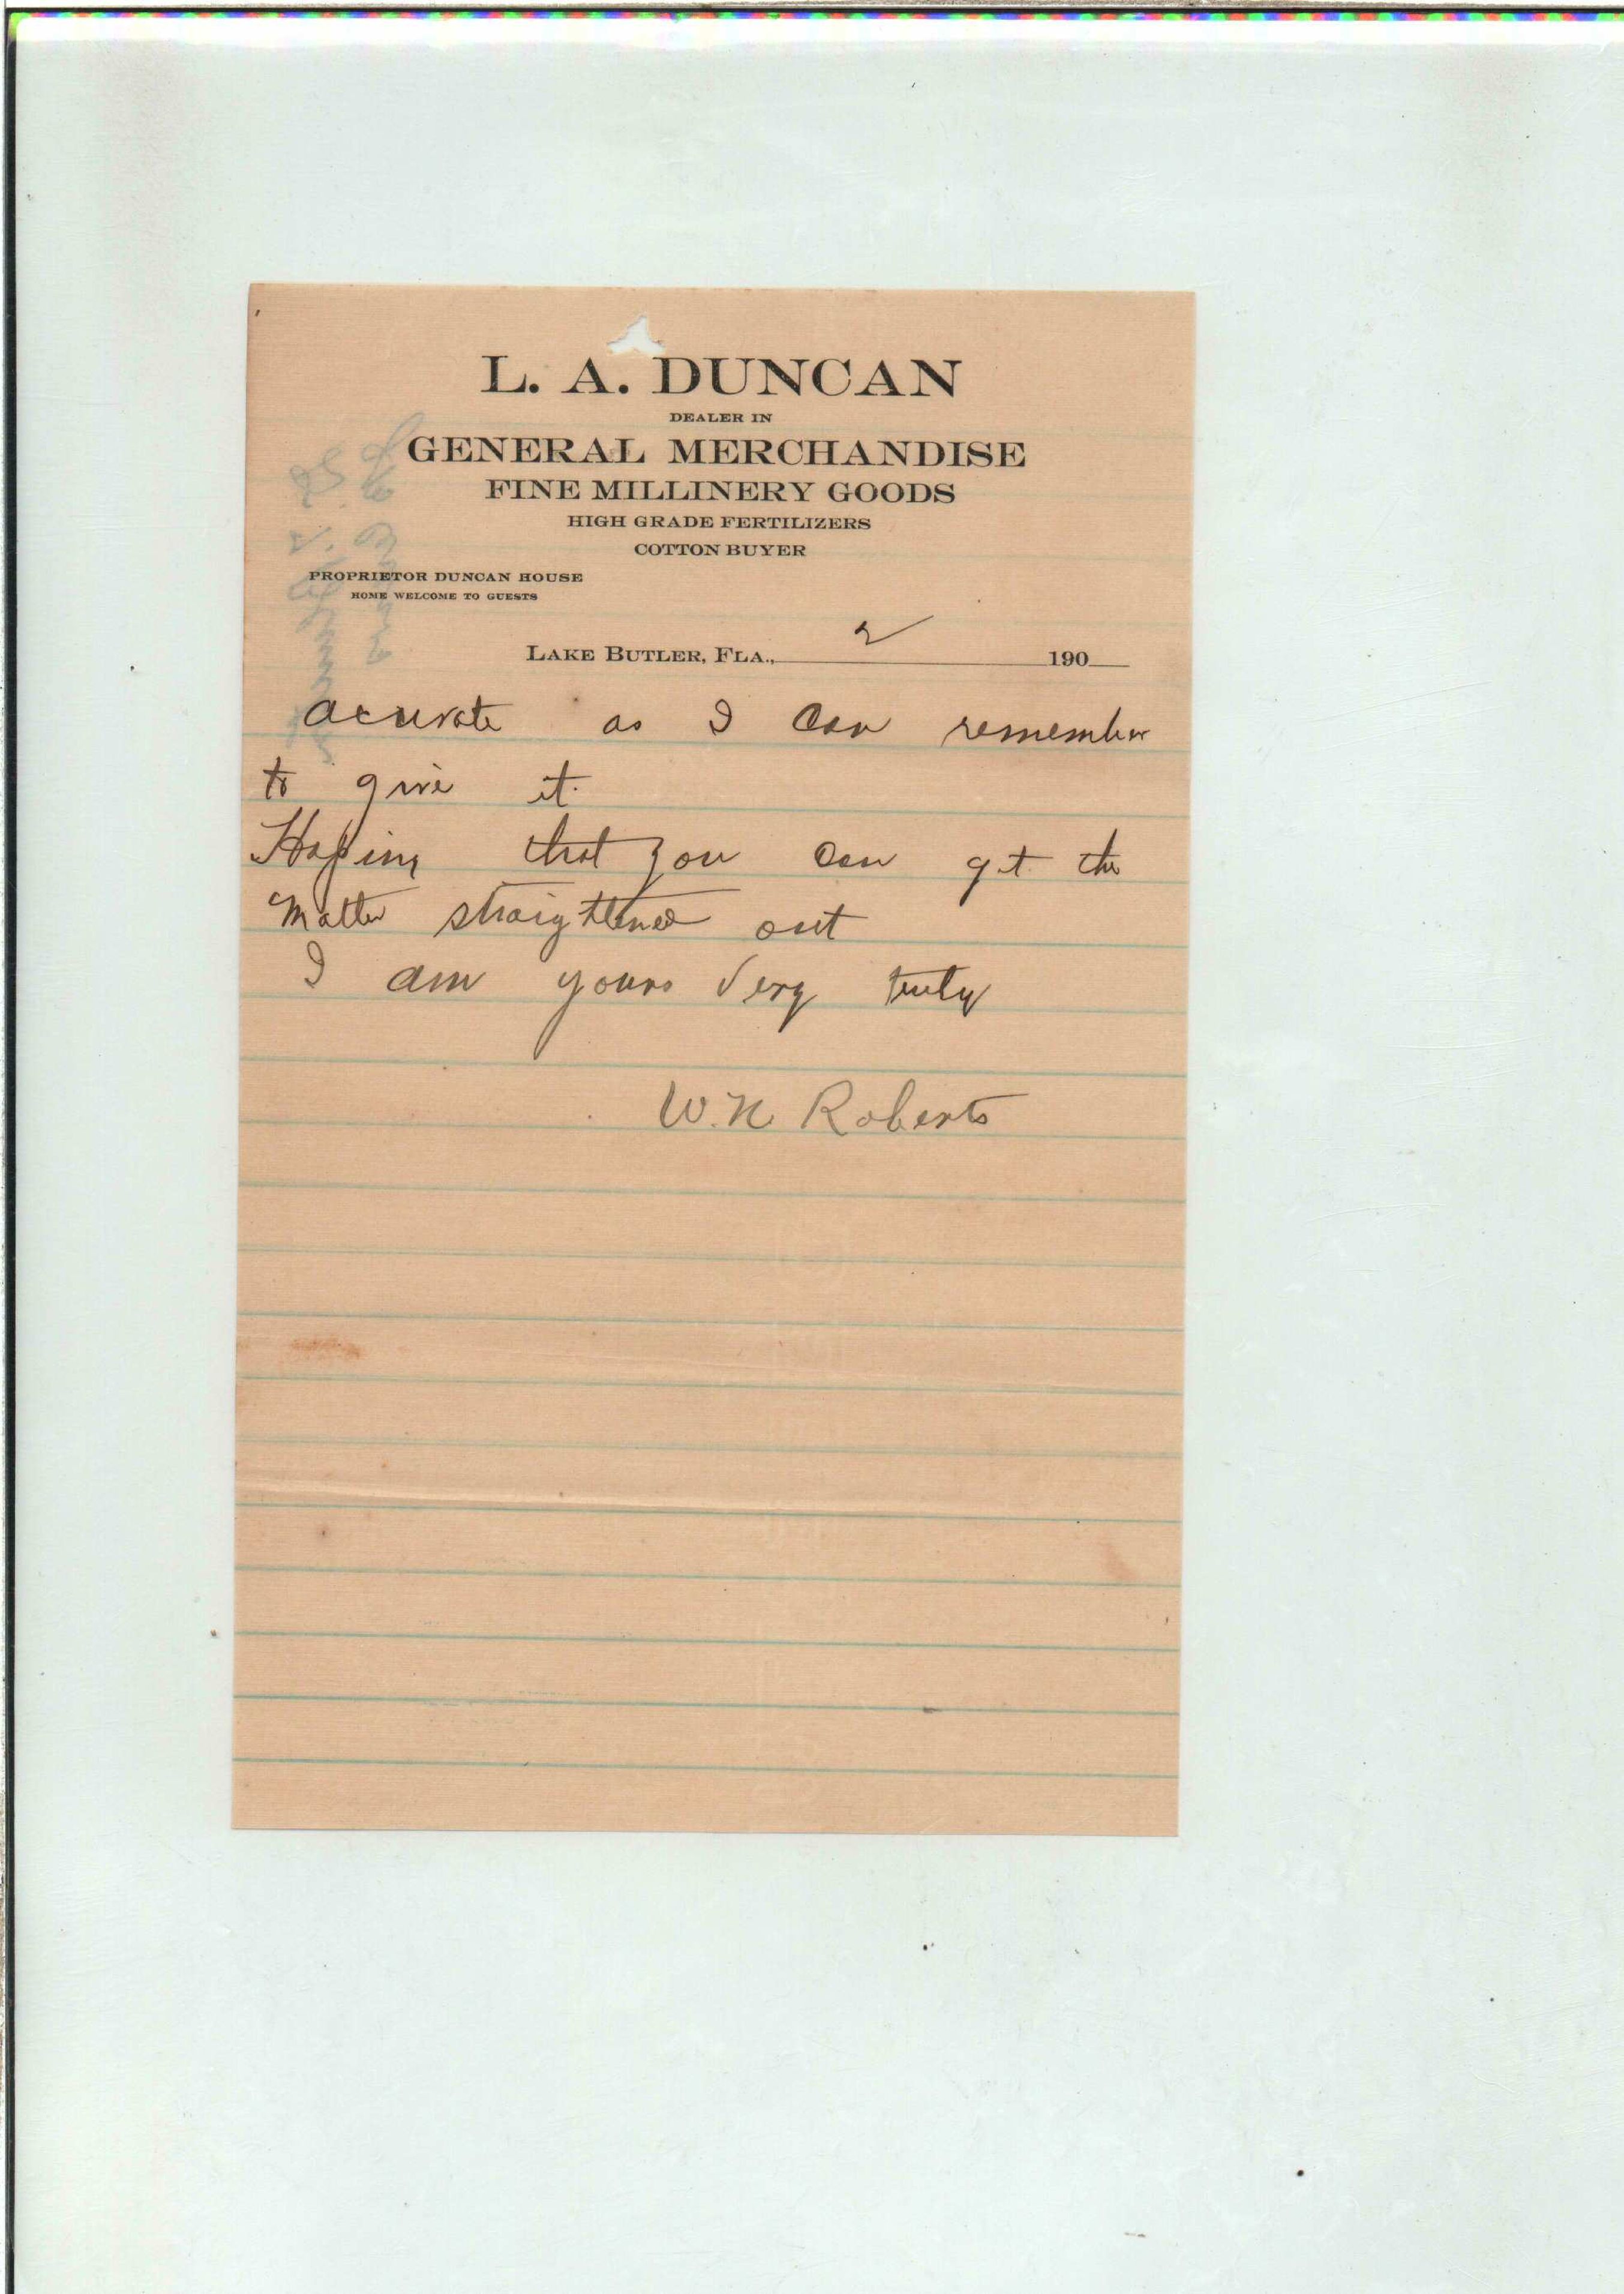 L. A. DUNCAN
DEALER IN
GENERAL MERCHANDISE
FINE MILLINERY GOODS
HIGH GRADE FERTILIZERS
COTTON BUYER
PROPRIETOR DUNCAN HOUSE
HOME WELCOME TO GUESTS
LAKE BUTLER, FLA., 2 190
acurate as I can remember
to give it.
Hoping that you can get the
matter straightened out
I am yours very truly
W. N Roberts